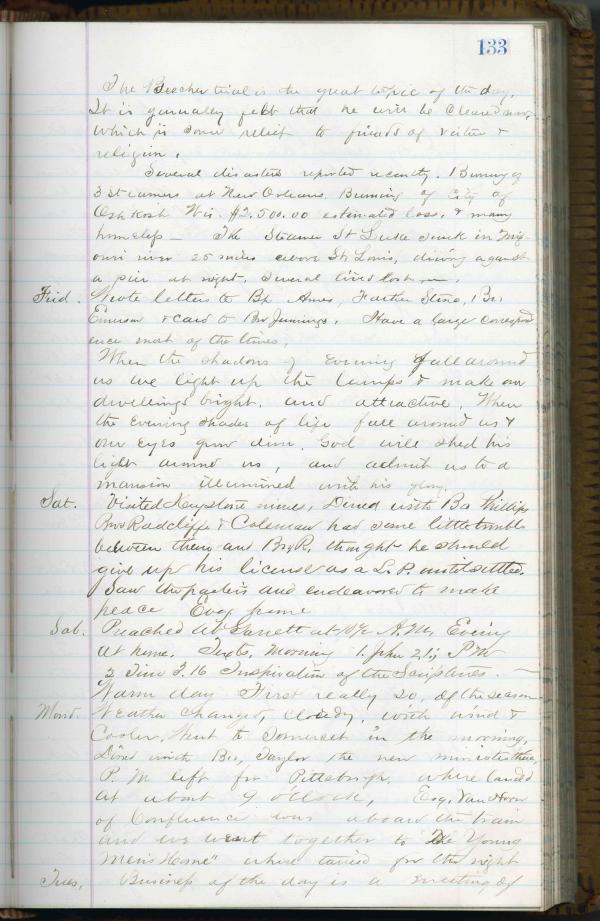 133
The Beecher trial is the great topic of the day.
It is generally felt that he will be cleared now,
which is some relief to friends of virtue &
religion.
Several disasters reported recently. Burning of
3 steamers at New Orleans. Burning of City of
Oshkosh Wis. $2.500.00 estimated loss, & many
homeless — The Steamer St Luke sunk in Miss-
ouri river 25 miles above St. Louis, driving against
a pier at night. Several lives lost —
Frid. Wrote letters to Bp Ames, Father Bro.
Emerson & card to Bro Jennings. Have a large correspond
ence most of the times.
When the shadows of evening fall around
us we light up the lamps & make our
dwellings bright, and attractive. When
the evening shades of life fall around us &
our eyes grow dim, God will shed his
light around us, and admit us to a
mansion illumined with his glory.
Sat. Visited Keystone mines, Dined with Bro Phillips
Bro Radcliffe & Coleman had some little trouble
between them, and Bro R. thought he should
give up his license as a L. P. until settled.
Saw the parties and endeavored to make
peace
Sab. Preached at Garrett at 10½ A.M., Evening
at home. Texts, morning 1. John 2,1; P.M
2 Tim 3.16 Inspiration of the Scriptures. —
Warm day First really so, of the season
Mond. Weather changed, cloudy, with wind &
Cooler. Went to Somerset in the morning,
Dined with Bro, Taylor the new minister there,
P. M left for Pittsburgh, where landed
at about 9 O'Clock, Esq. Van Horn
of Confluence was aboard the train
and we went together to "The Young
Men's Home" where tarried for the night
Tues, Business of the day is a meeting of